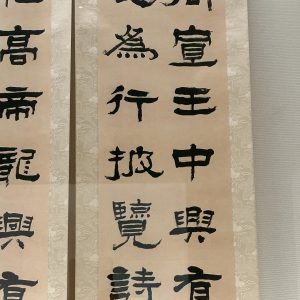 宣王中興有
為行披覽詩
高帝龍興有